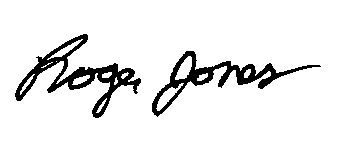 Roger Jones